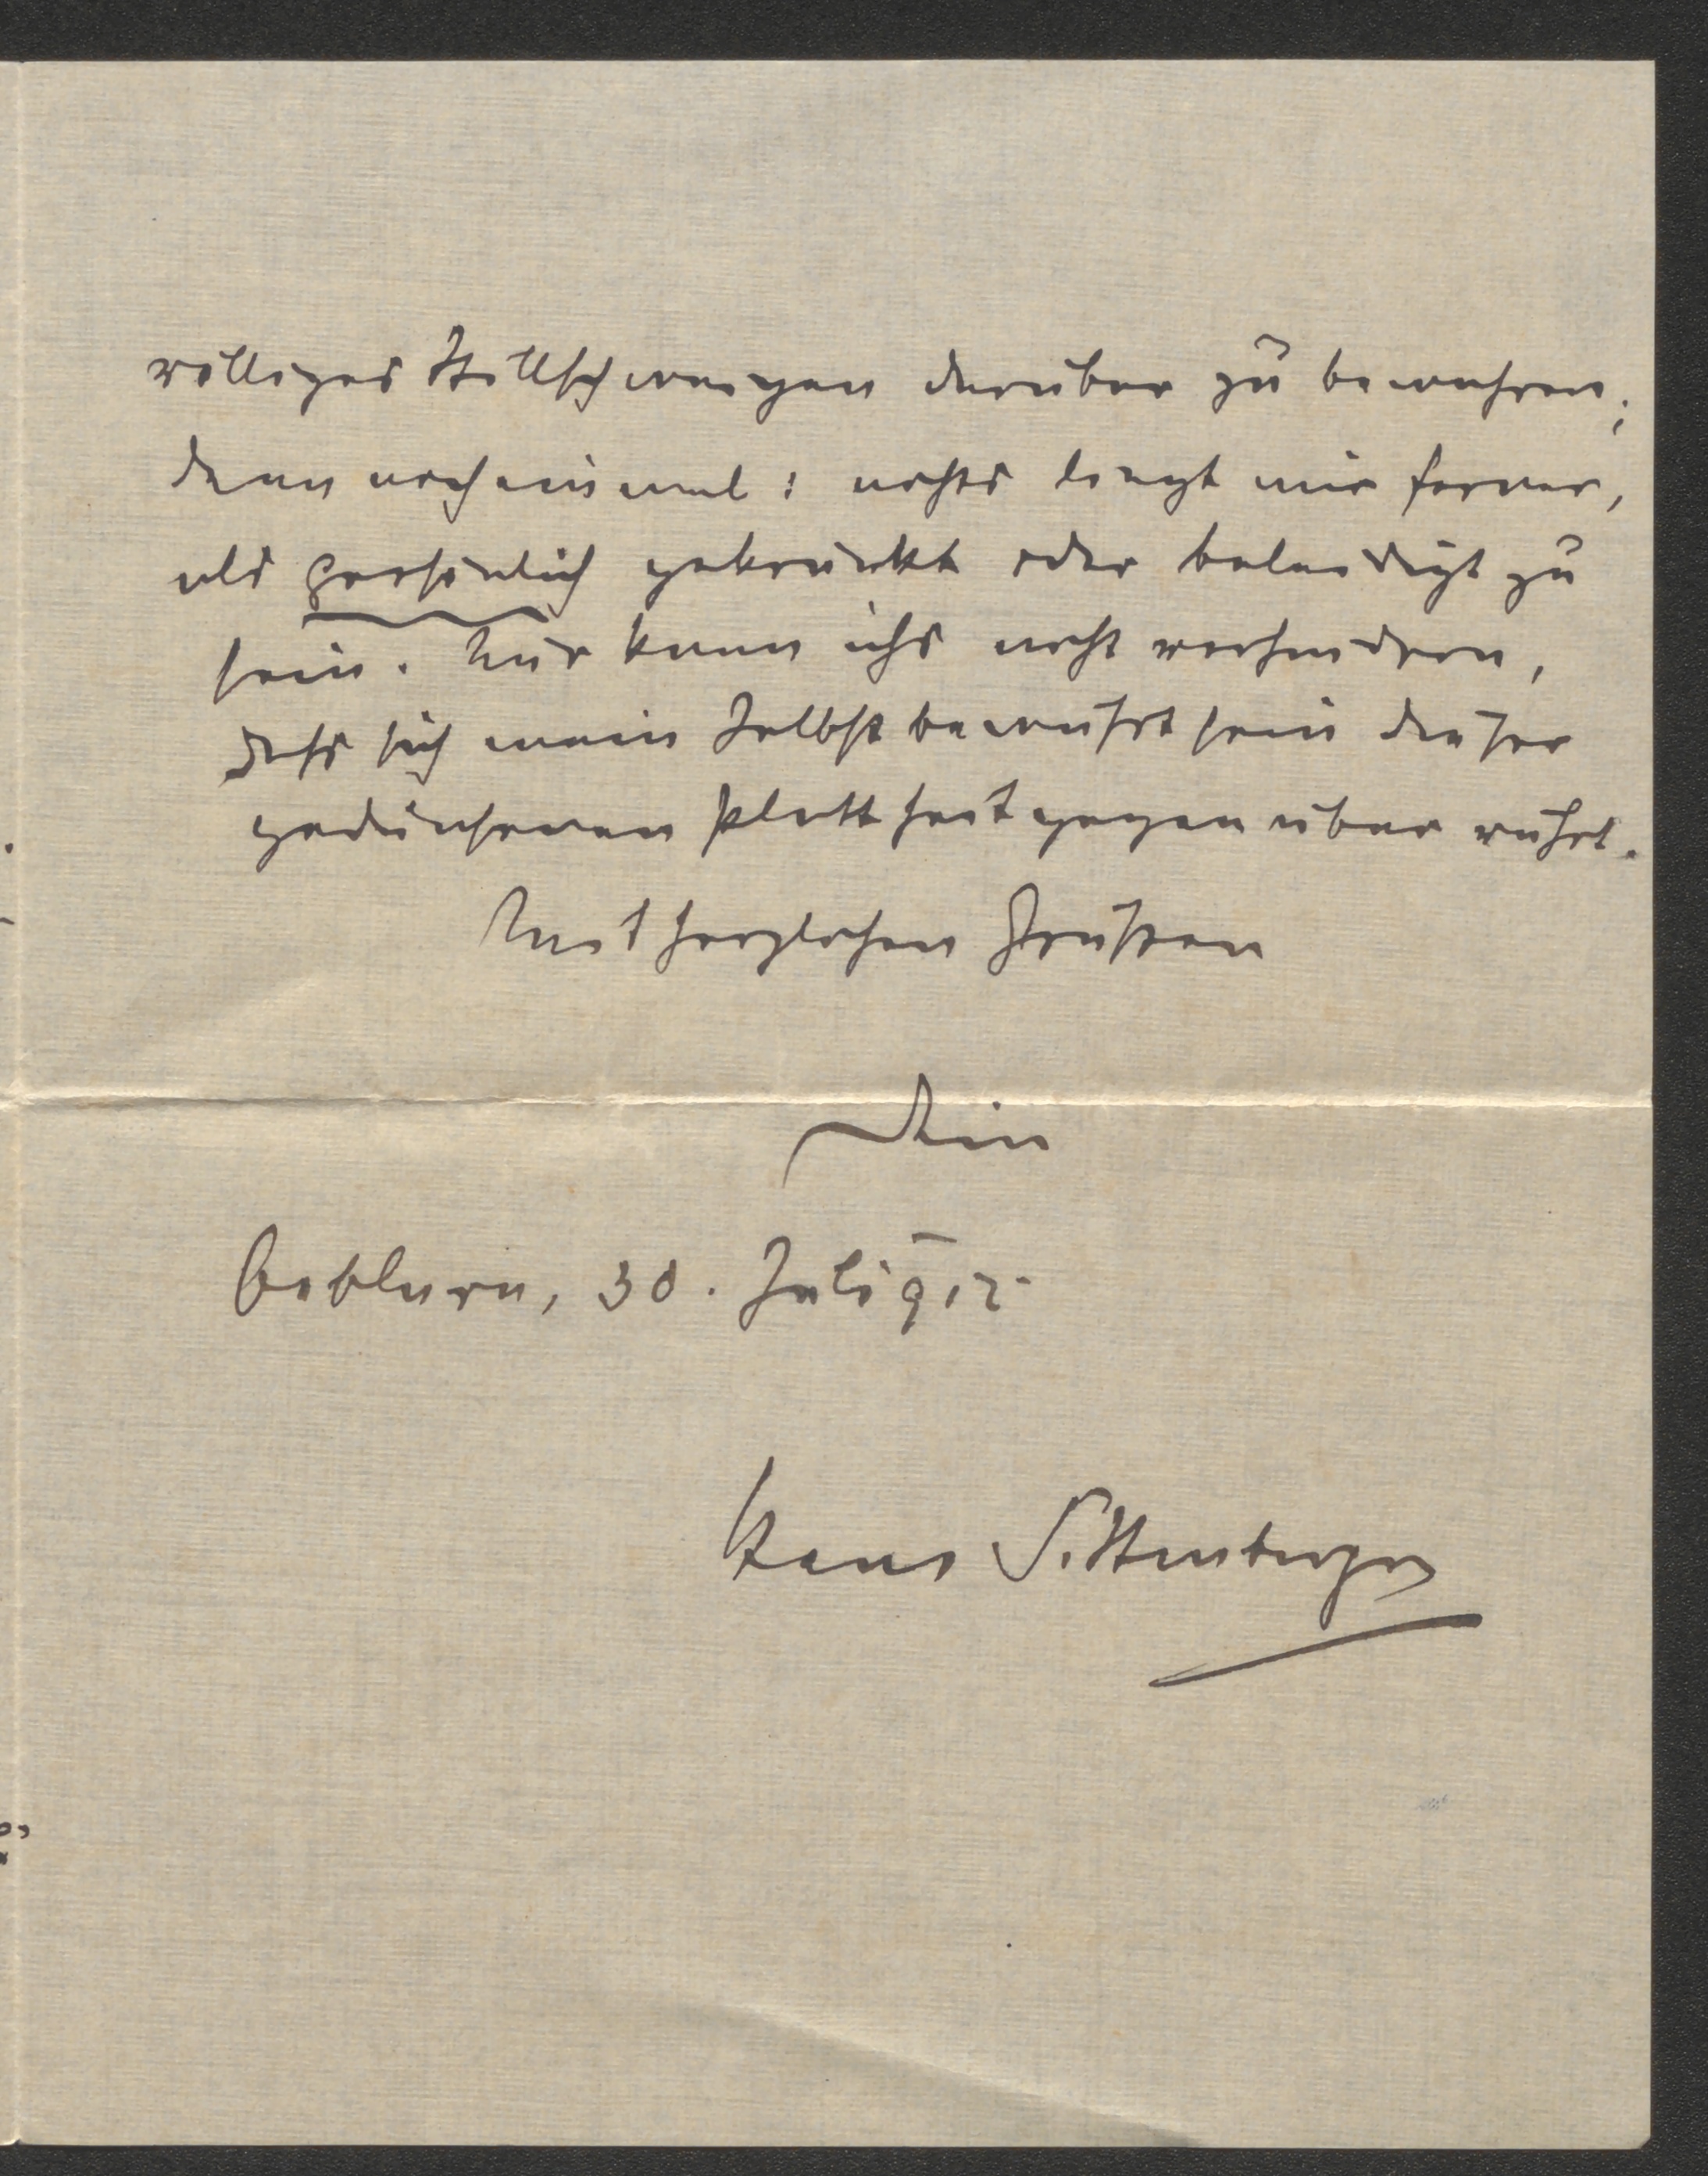 völliges Stillschweigen darüber zu bewahren;
denn noch einmal: nichts liegt mir ferner,
als persönlich gekränkt oder beleidigt zu
sein. Nur kann ichs nicht verhindern,
dass sich mein Selbstbewußtsein dieser
gedunsenen Plattheit gegenüber rührt.
Mit herzlichen Grüßen
Dein
Oeblarn, 30. Juli 912.
Hans Sittenberger